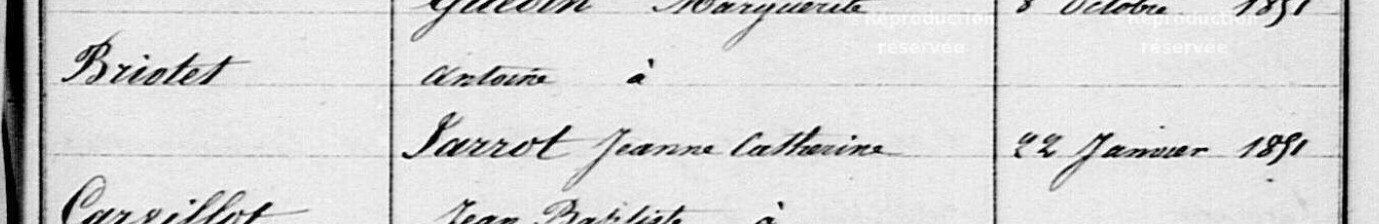 Marguerite 8 Octobre 1851
Reproduction Reproduction
réservée réservée
Briotet Antoine à
Jarrot Jeanne Catherine 22 Janvier 1851
Jean Baptiste à